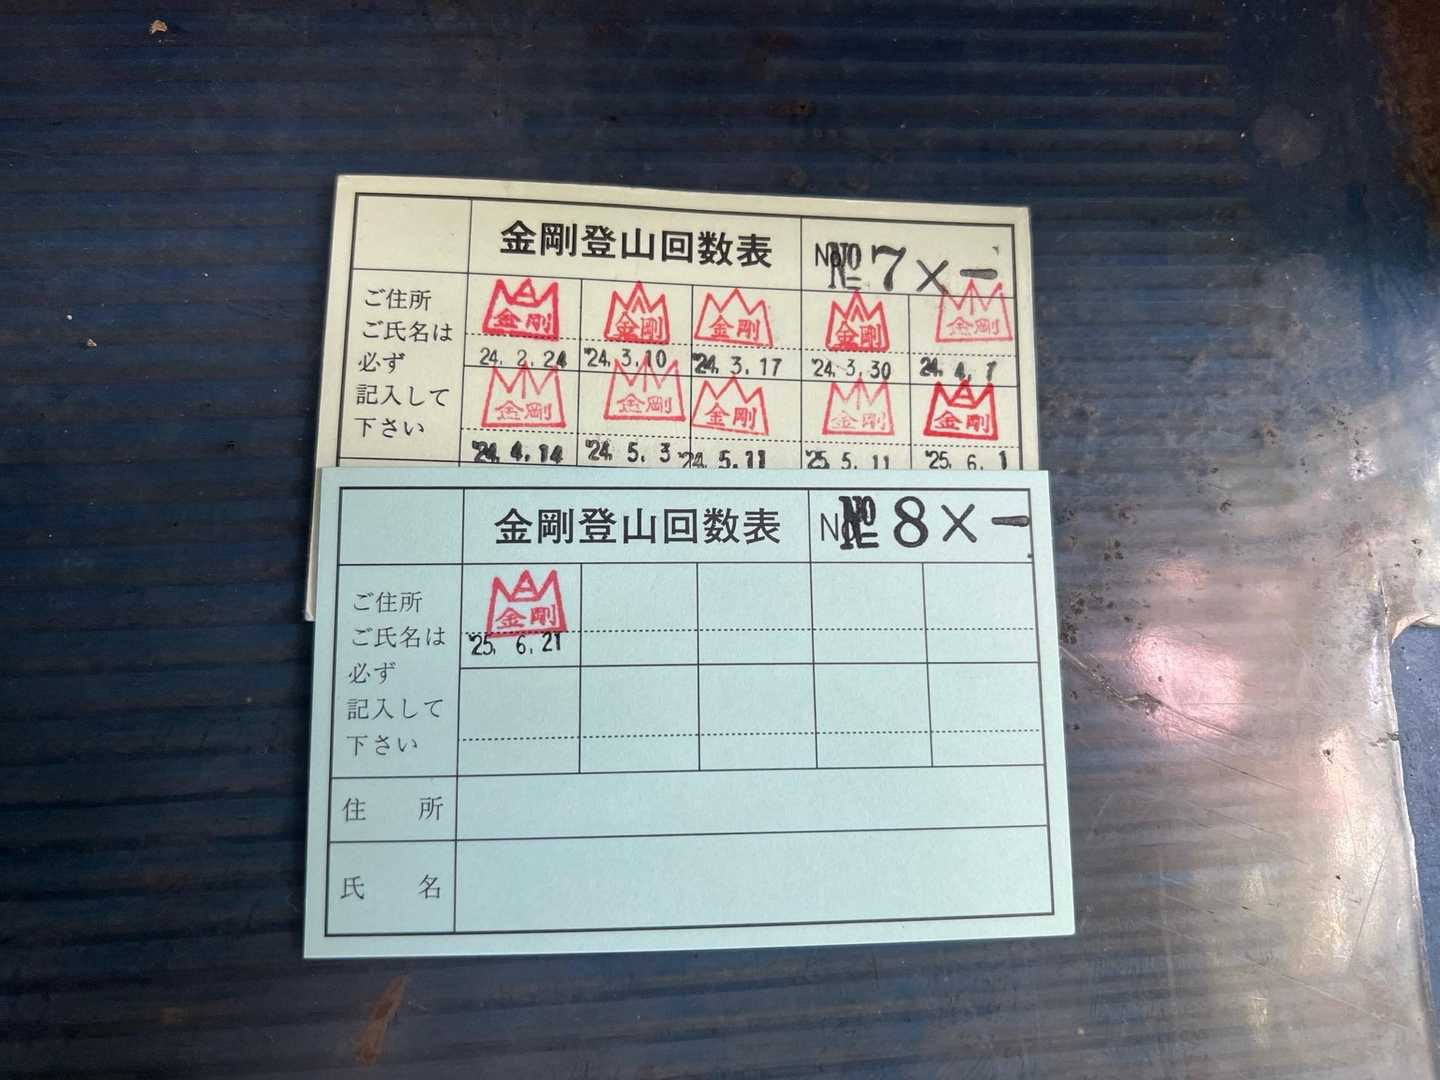 金剛登山回数表
No. No 7 × −
ご住所
ご氏名は
必ず
記入して
下さい
金剛 金剛 金剛 金剛 金剛
'24. 2. 24 '24. 3. 10 '24. 3. 17 '24. 3. 30 '24. 4. 7
金剛 金剛 金剛 金剛 金剛
'24. 4. 14 '24. 5. 3 '24. 5. 11 '25. 5. 11 '25. 6. 1
金剛登山回数表
No. No 8 × −
ご住所
ご氏名は
必ず
記入して
下さい
金剛
'25. 6. 21
住 所
氏 名